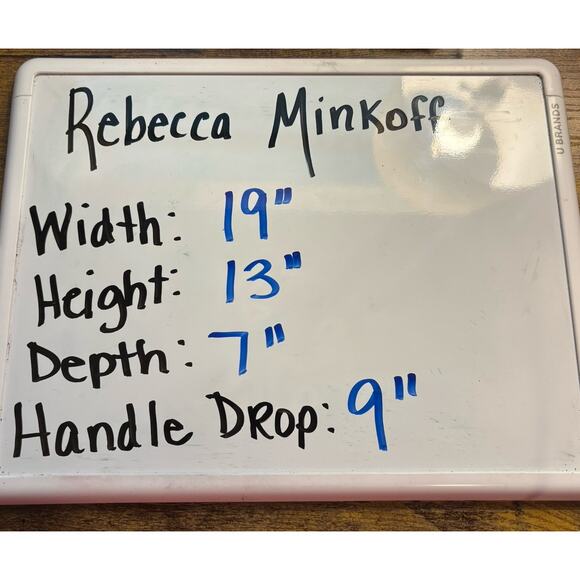 Rebecca Minkoff
Width: 19"
Height: 13"
Depth: 7"
Handle Drop: 9"
U BRANDS